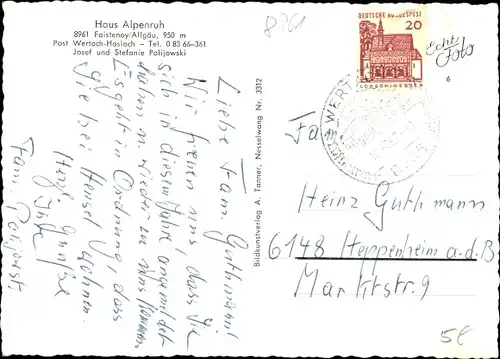 Haus Alpenruh
8961 Faistenoy/Allgäu, 950 m
Post Wertach-Haslach – Tel. 0 83 66–361
Josef und Stefanie Polijowski
Liebe Fam. Guthmann!
Wir freuen uns, dass Sie
sich in diesem Jahre angemeldet
haben u. wieder zu uns kommen
Es geht in Ordnung, dass
Sie bei Hensel wohnen.
Herzl. Grüße
Ihre
Fam. Polijowski
Bildkunstverlag A. Tanner, Nesselwang Nr. 3312
DEUTSCHE BUNDESPOST
20
LORSCH/HESSEN
Echt
Foto
6
WERT
Fam.
Heinz Guthmann
6148 Heppenheim a.d.B.
Marktstr. 9
5€